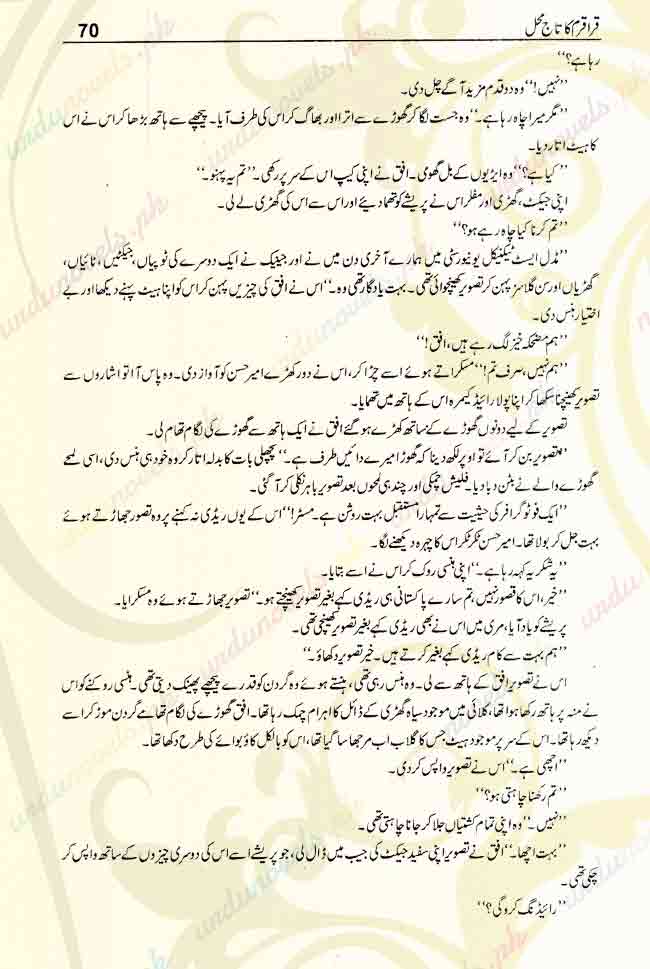 قراقرم کا تاج محل 70
رہا ہے؟‘‘
’’نہیں!‘‘ وہ دو قدم مزید آگے چل دی۔
’’مگر میرا چاہ رہا ہے۔‘‘ وہ جست لگا کر گھوڑے سے اترا اور بھاگ کر اس کی طرف آیا۔ پیچھے سے ہاتھ بڑھا کر اس نے اس
کا ہیٹ اتار دیا۔
’’کیا ہے؟‘‘ وہ ایڑیوں کے بل گھومی۔ افق نے اپنی کیپ اس کے سر پر رکھی۔ ’’تم یہ پہنو۔‘‘
اپنی جیکٹ، گھڑی اور مفلر اس نے پریشے کو تھما دیئے اور اس سے اس کی گھڑی لے لی۔
’’تم کرنا کیا چاہ رہے ہو؟‘‘
’’مڈل ایسٹ ٹیکنیکل یونیورسٹی میں ہمارے آخری دن میں نے اور جینیک نے ایک دوسرے کی ٹوپیاں، جیکٹیں، ٹائیاں،
گھڑیاں اور سن گلاسز پہن کر تصویر کھنچوائی تھی۔ بہت یادگار تھی وہ۔‘‘ اس نے افق کی چیزیں پہن کر اس کو اپنا ہیٹ پہنے دیکھا اور بے
اختیار ہنس دی۔
’’ہم مضحکہ خیز لگ رہے ہیں، افق!‘‘
’’ہم نہیں، صرف تم!‘‘ مسکراتے ہوئے اسے چڑا کر، اس نے دور کھڑے امیر حسن کو آواز دی۔ وہ پاس آیا تو اشاروں سے
تصویر کھینچنا سکھا کر اپنا پولا رائیڈ کیمرہ اس کے ہاتھ میں تھمایا۔
تصویر کے لیے دونوں گھوڑے کے ساتھ کھڑے ہو گئے افق نے ایک ہاتھ سے گھوڑے کی لگام تھام لی۔
’’تصویر بن کر آئے تو اوپر لکھ دینا کہ گھوڑا میرے دائیں طرف ہے۔‘‘ پچھلی بات کا بدلہ اتار کر وہ خود ہی ہنس دی، اسی لمحے
گھوڑے والے نے بٹن دبا دیا۔ فلیش چمکی اور چند ہی لمحوں بعد تصویر باہر نکل کر آ گئی۔
’’ایک فوٹو گرافر کی حیثیت سے تمہارا مستقبل بہت روشن ہے۔ مسٹر!‘‘ اس کے یوں ریڈی نہ کہنے پر وہ تصویر جھاڑتے ہوئے
بہت جل کر بولا تھا۔ امیر حسن ٹکر ٹکر اس کا چہرہ دیکھنے لگا۔
’’یہ شکریہ کہہ رہا ہے۔‘‘ اپنی ہنسی روک کر اس نے اسے بتایا۔
’’خیر، اس کا قصور نہیں، تم سارے پاکستانی ہی ریڈی کہے بغیر تصویر کھینچتے ہو۔‘‘ تصویر جھاڑتے ہوئے وہ مسکرایا۔
پریشے کو یاد آیا، مری میں اس نے بھی ریڈی کہے بغیر تصویر کھینچی تھی۔
’’ہم بہت سے کام ریڈی کہے بغیر کرتے ہیں۔ خیر تصویر دکھاؤ۔‘‘
اس نے تصویر افق کے ہاتھ سے لی۔ وہ ہنس رہی تھی، ہنستے ہوئے وہ گردن کو قدرے پیچھے پھینک دیتی تھی۔ ہنسی روکنے کو اس
نے منہ پر ہاتھ رکھا ہوا تھا، کلائی میں موجود سیاہ گھڑی کے ڈائل کا اہرام چمک رہا تھا۔ افق گھوڑے کی لگام تھامے گردن موڑ کر اسے
دیکھ رہا تھا۔ اس کے سر پر موجود ہیٹ جس کا گلاب اب مرجھا سا گیا تھا، اس کو بالکل کاؤبوائے کی طرح دکھا تھا۔
’’اچھی ہے۔‘‘ اس نے تصویر واپس کر دی۔
’’تم رکھنا چاہتی ہو؟‘‘
’’نہیں۔‘‘ وہ اپنی تمام کشتیاں جلا کر جانا چاہتی تھی۔
’’بہت اچھا۔‘‘ افق نے تصویر اپنی سفید جیکٹ کی جیب میں ڈال لی، جو پریشے اسے اس کی دوسری چیزوں کے ساتھ واپس کر
چکی تھی۔
’’رائیڈنگ کرو گی؟‘‘